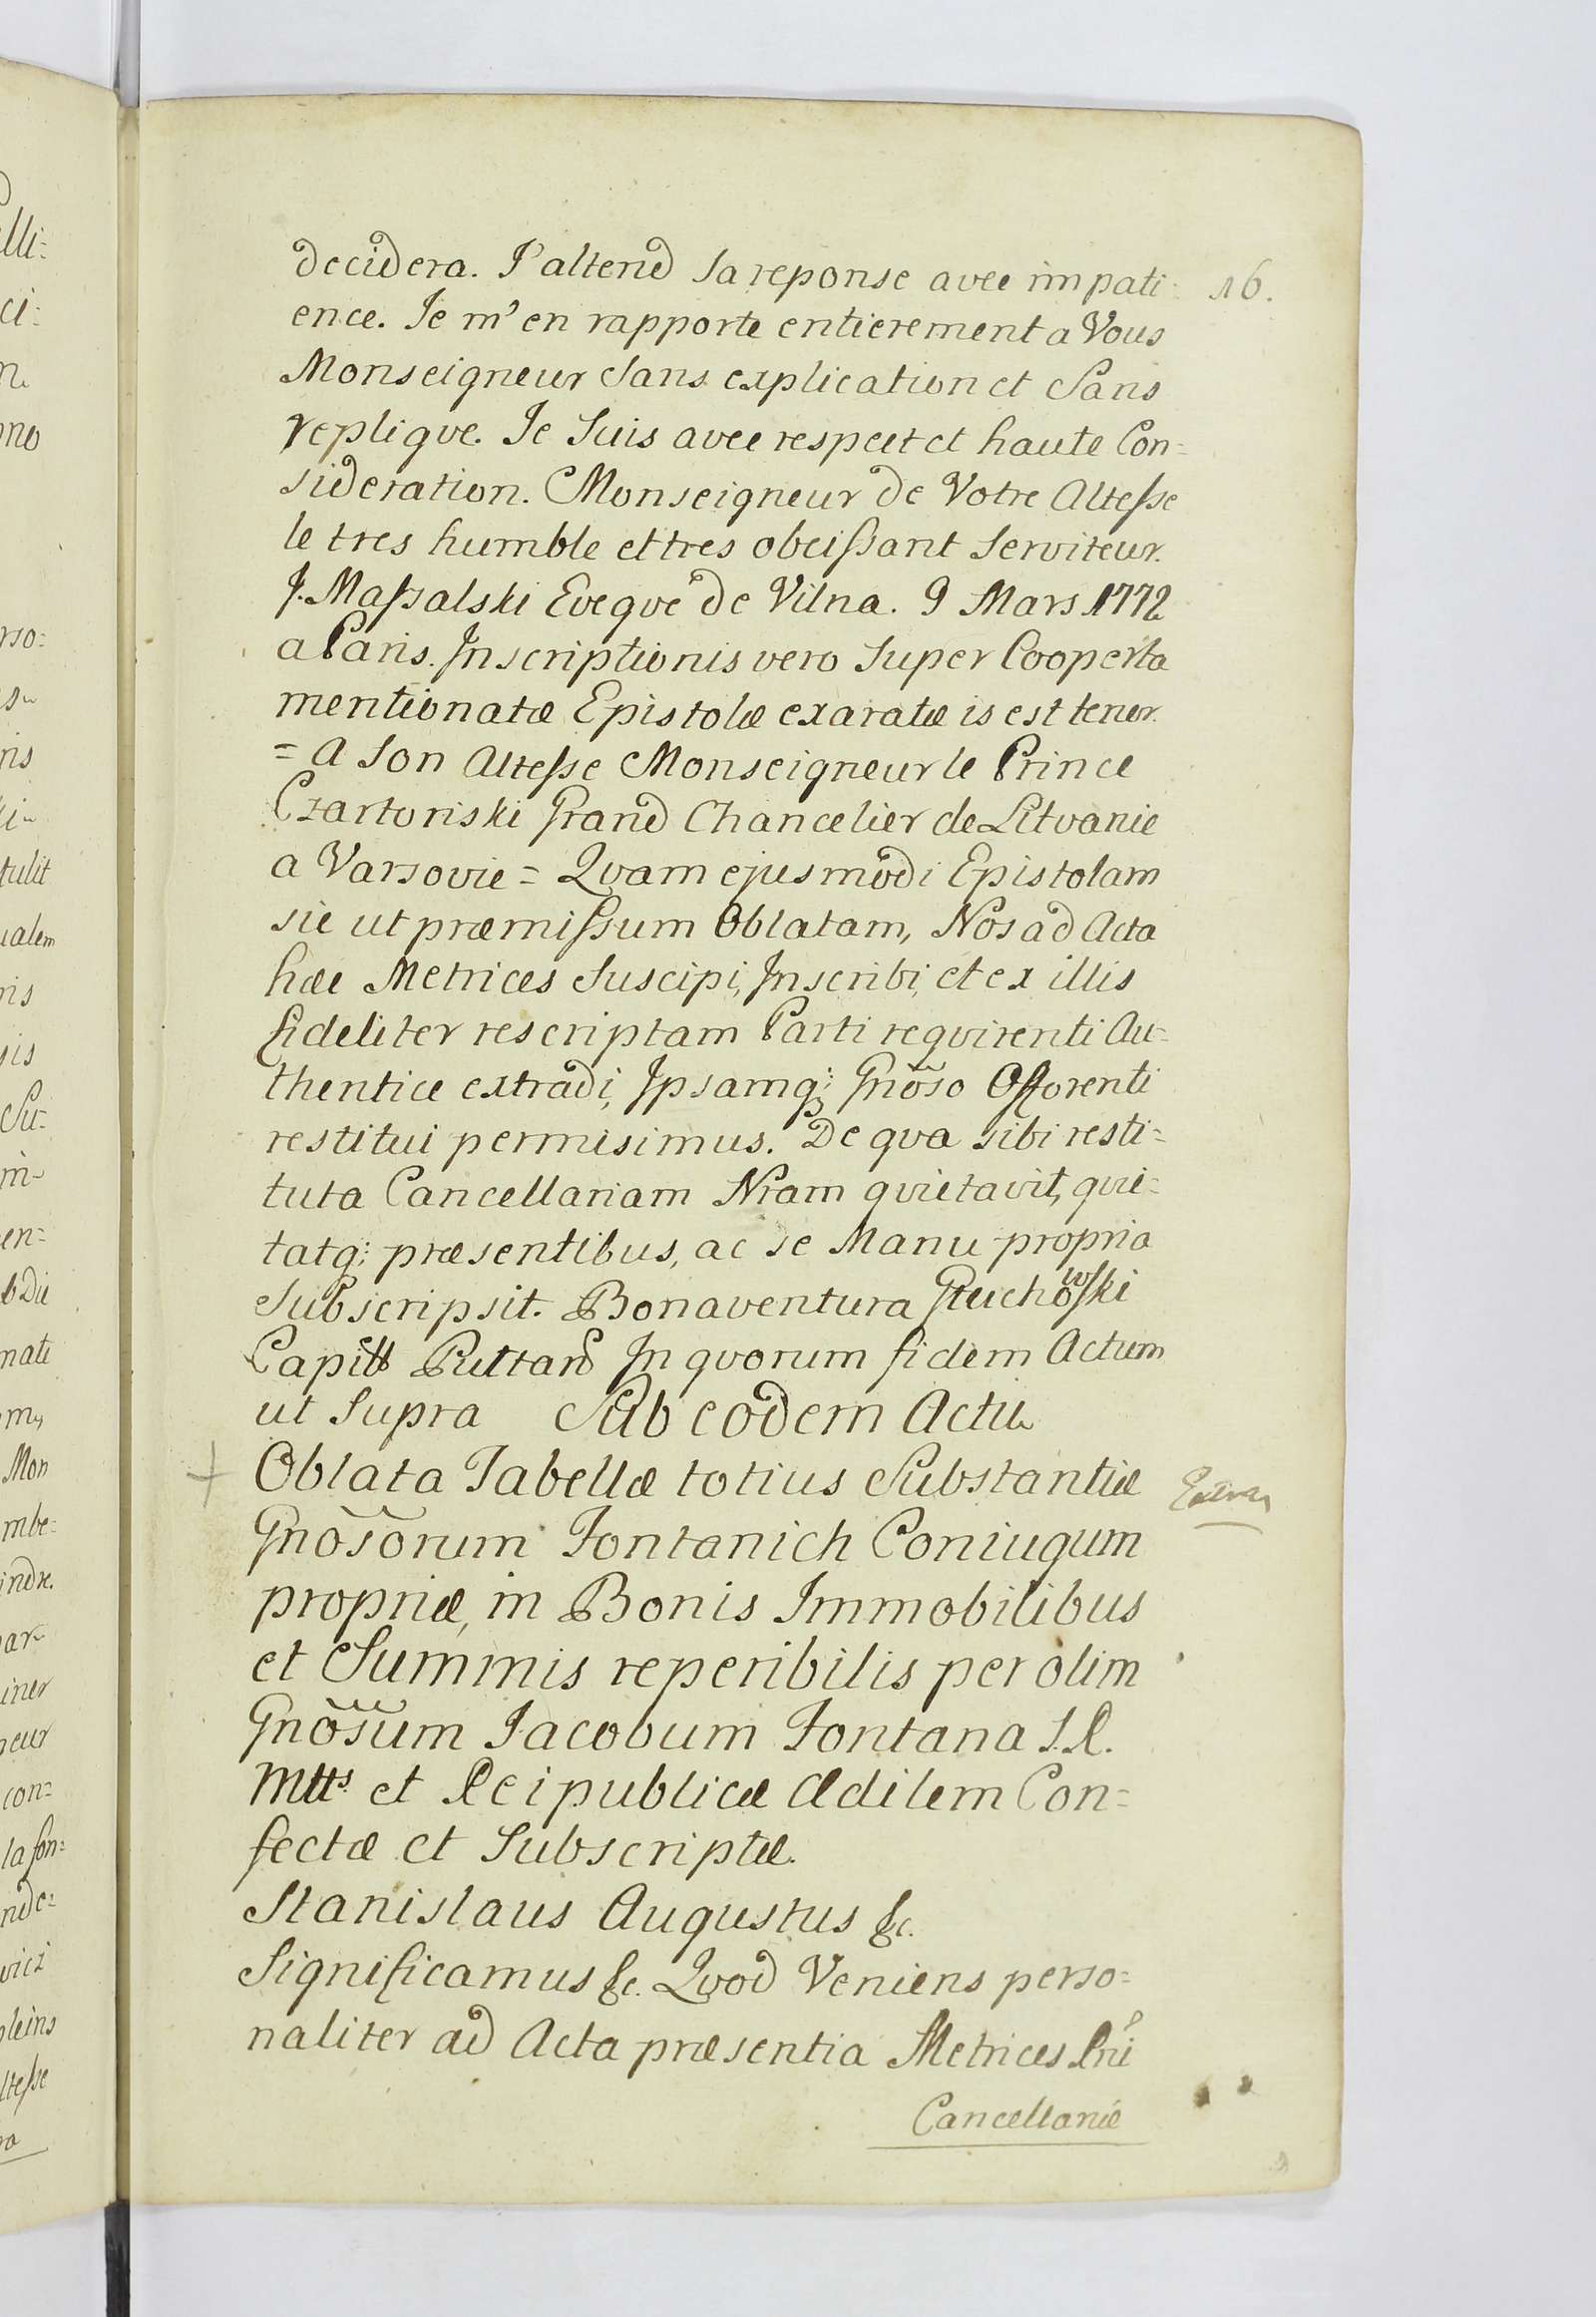 decidera. J'attend sa reponse avec impati=
16.
ence. Je m'en rapporte entierement a Vous
Monseigneur sans explication et sans
repliqve. Je suis avec respect et haute Con=
sideration. Monseigneur de Votre Altesse
le tres humble et tres obeissant Serviteur.
J. Massalski Eveqve de Vilna. 9 Mars 1772
a Paris. Inscriptionis vero super Cooperta
mentionatæ Epistolæ exaratæ is est tenor.
= A son Altesse Monseigneur le Prince
Czartoriski Grand Chancelier de Litvanie
a Varsovie = Qvam ejusmodi Epistolam
sic ut præmissum Oblatam, Nos ad Acta
hæc Metrices suscipi, Inscribi, et ex illis
fideliter rescriptam Parti reqvirenti Au=
thentice extradi, Ipsamq; Gnõso Offerenti
restitui permisimus. De qva sibi resti=
tuta Cancellariam Nram qvietavit, qvie=
tatq; præsentibus, ac se Manu propria
Subscripsit. Bonaventura Gluchowski
Capitt Buttan In qvorum fidem Actum
ut Supra Sub eodem Actu
Oblata Tabellæ totius Substantiæ
Gnõsorum Fontanich Coniugum
propriæ, in Bonis Immobilibus
et Summis reperibilis per olim
Gnõsum Jacobum Fontana S. R.
Mtts et Reipublicæ Ædilem Con=
fectæ et Subscriptæ.
Stanislaus Augustus &c.
Significamus &c. Qvod Veniens perso=
naliter ad Acta præsentia Metrices Rni
Cancellariæ